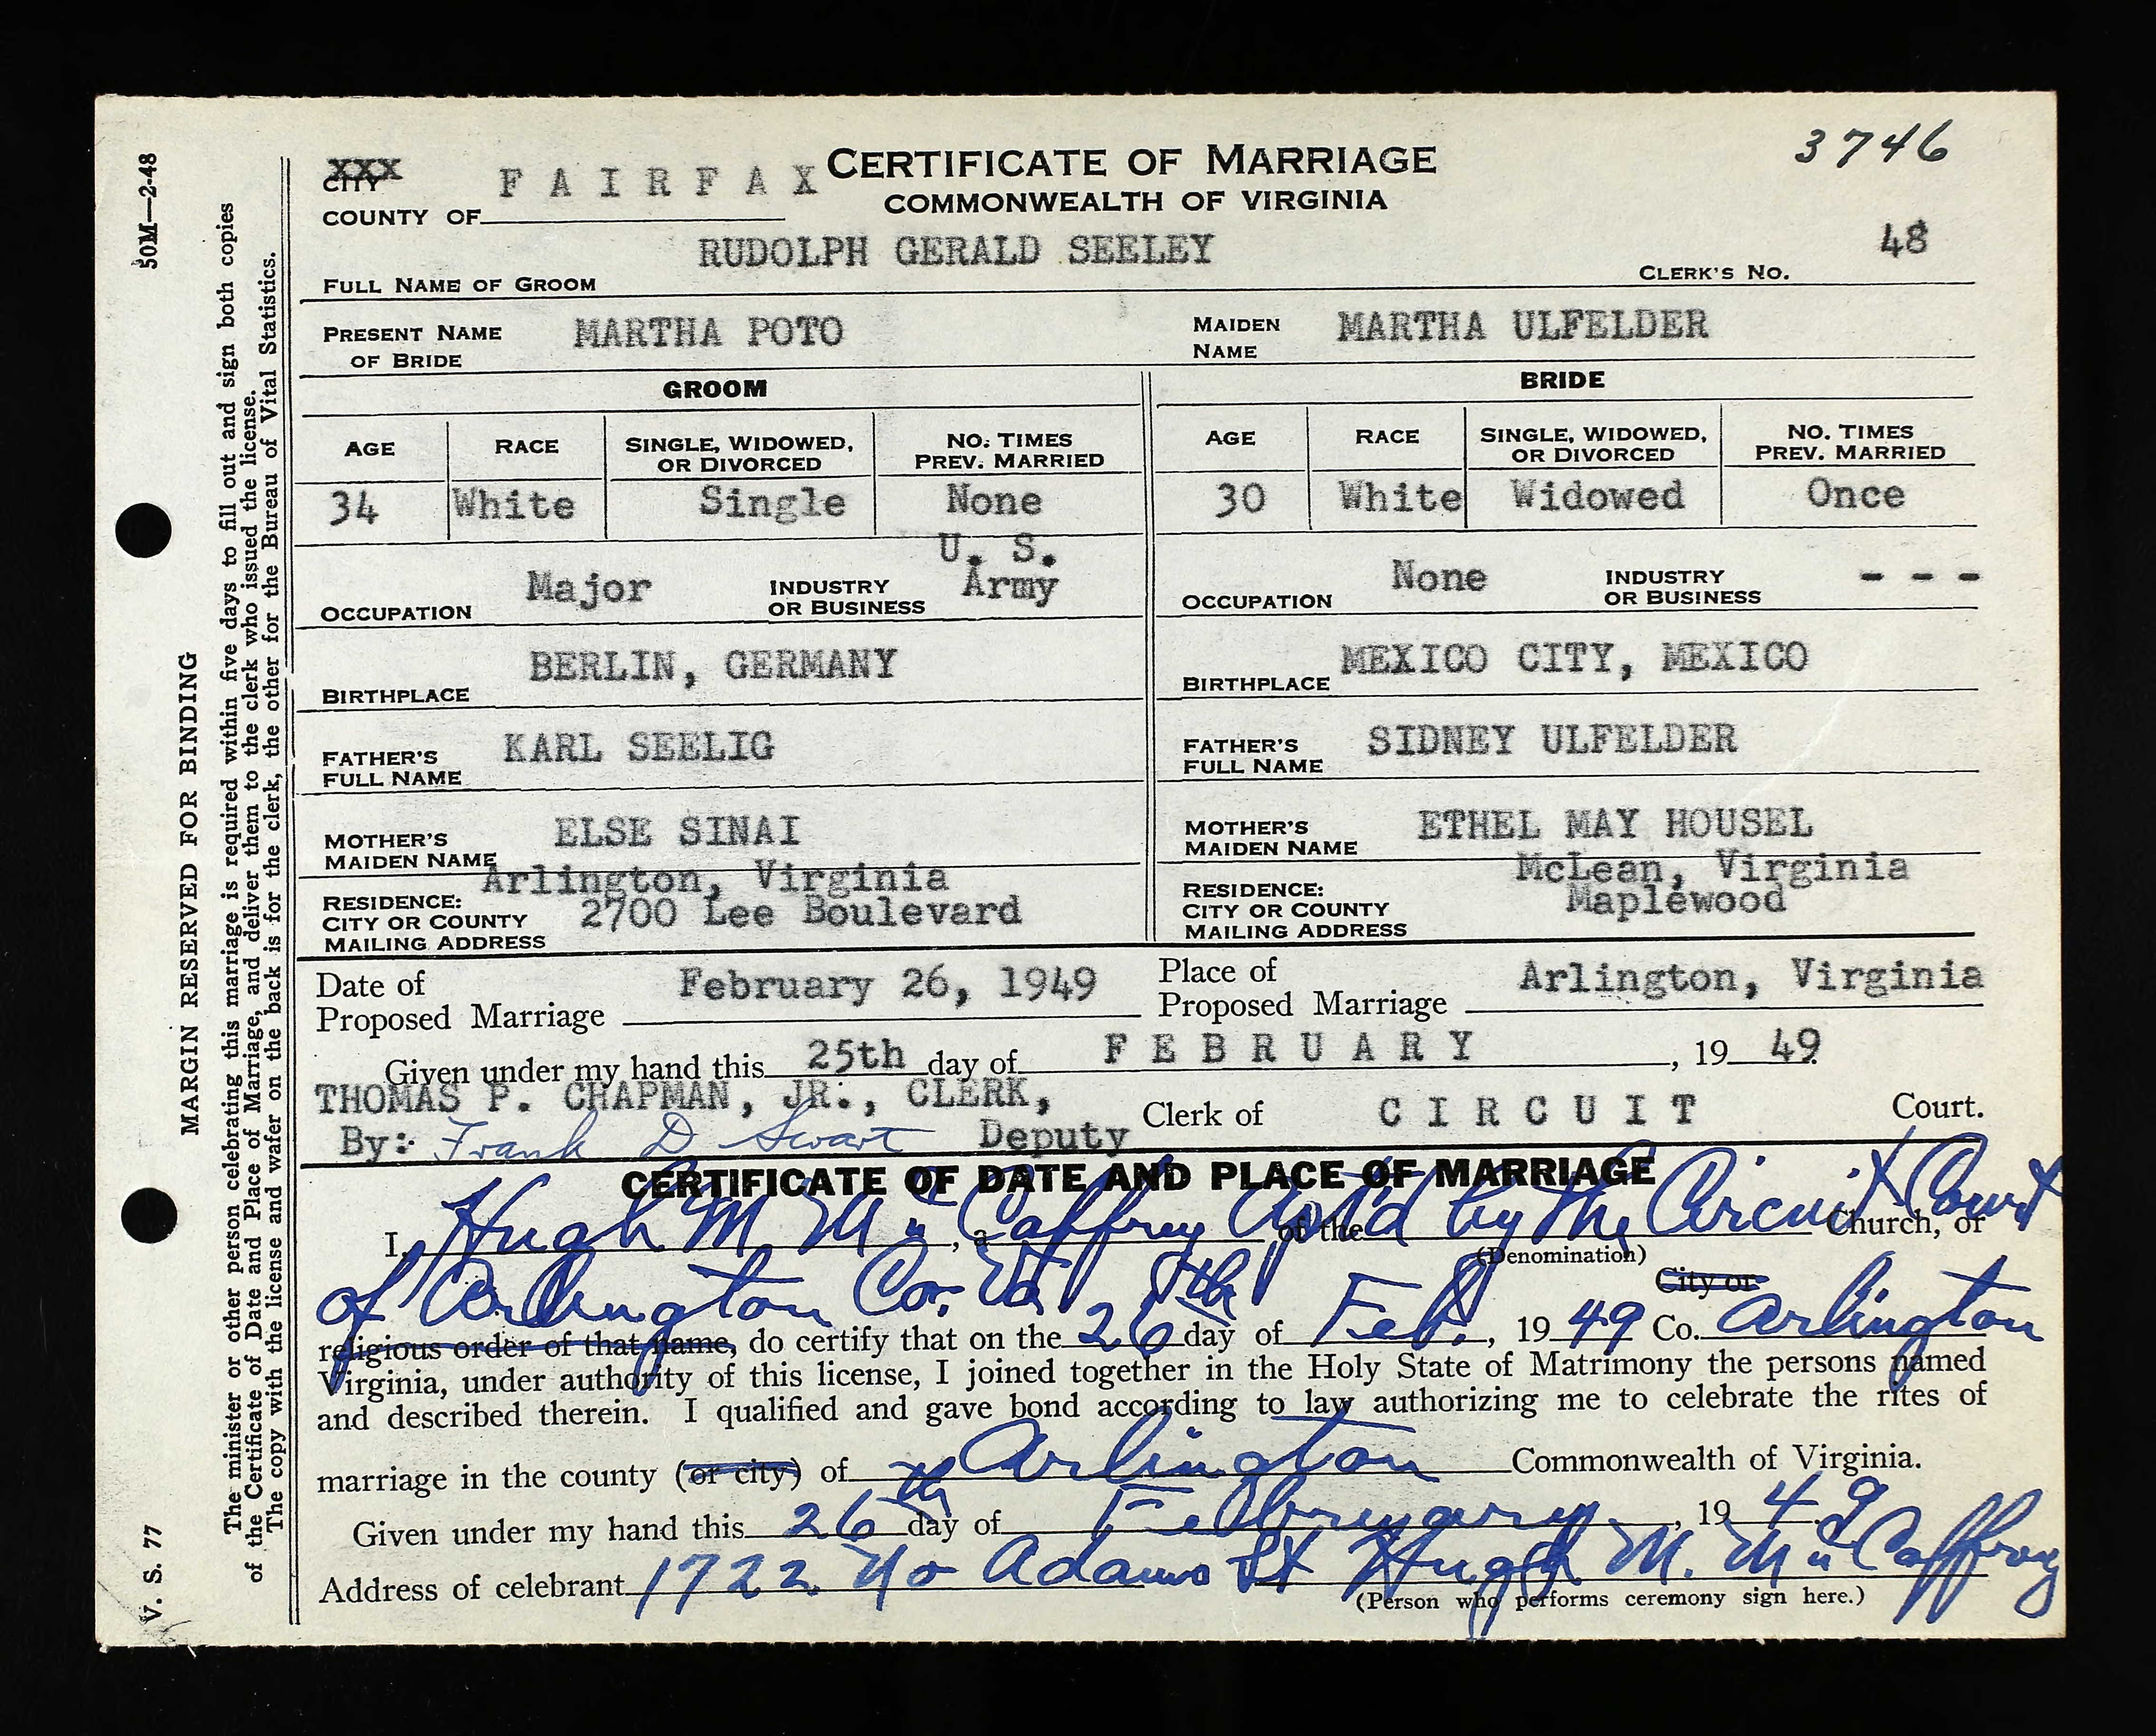 50M—2-48
MARGIN RESERVED FOR BINDING
V. S. 77
The minister or other person celebrating this marriage is required within five days to fill out and sign both copies
of the Certificate of Date and Place of Marriage, and deliver them to the clerk who issued the license.
The copy with the license and wafer on the back is for the clerk, the other for the Bureau of Vital Statistics.
3746
XXX
CITY
COUNTY OF FAIRFAX
CERTIFICATE OF MARRIAGE
COMMONWEALTH OF VIRGINIA
FULL NAME OF GROOM RUDOLPH GERALD SEELEY CLERK'S NO. 48
PRESENT NAME OF BRIDE MARTHA POTO MAIDEN NAME MARTHA ULFELDER
GROOM BRIDE
AGE RACE SINGLE, WIDOWED, OR DIVORCED NO. TIMES PREV. MARRIED AGE RACE SINGLE, WIDOWED, OR DIVORCED NO. TIMES PREV. MARRIED
34 White Single None 30 White Widowed Once
OCCUPATION Major INDUSTRY OR BUSINESS U. S. Army OCCUPATION None INDUSTRY OR BUSINESS - - -
BIRTHPLACE BERLIN, GERMANY BIRTHPLACE MEXICO CITY, MEXICO
FATHER'S FULL NAME KARL SEELIG FATHER'S FULL NAME SIDNEY ULFELDER
MOTHER'S MAIDEN NAME ELSE SINAI MOTHER'S MAIDEN NAME ETHEL MAY HOUSEL
RESIDENCE: CITY OR COUNTY MAILING ADDRESS Arlington, Virginia 2700 Lee Boulevard RESIDENCE: CITY OR COUNTY MAILING ADDRESS McLean, Virginia Maplewood
Date of Proposed Marriage February 26, 1949 Place of Proposed Marriage Arlington, Virginia
Given under my hand this 25th day of FEBRUARY, 19 49.
THOMAS P. CHAPMAN, JR., CLERK,
By: Frank D Swart Deputy Clerk of CIRCUIT Court.
CERTIFICATE OF DATE AND PLACE OF MARRIAGE
I, Hugh M. McCaffrey, a Apt'd of the by the Circuit Court Church, or
(Denomination)
of Arlington Co. Va. City or
religious order of that name, do certify that on the 26th day of Feb., 19 49 Co. Arlington
Virginia, under authority of this license, I joined together in the Holy State of Matrimony the persons named
and described therein. I qualified and gave bond according to law authorizing me to celebrate the rites of
marriage in the county (or city) of Arlington Commonwealth of Virginia.
Given under my hand this 26th day of February, 19 49
Address of celebrant 1722 No Adams St Hugh M. McCaffrey
(Person who performs ceremony sign here.)